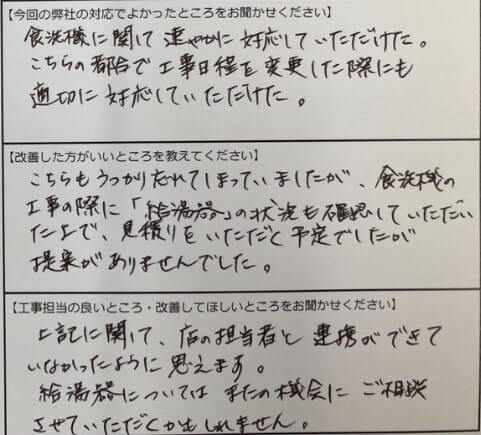 【今回の弊社の対応でよかったところをお聞かせください】
食洗機に関して速やかに対応していただけた。
こちらの都合で工事日程を変更した際にも
適切に対応していただけた。
【改善した方がいいところを教えてください】
こちらもうっかり忘れてしまっていましたが、食洗機の
工事の際に「給湯器」の状況も確認していただい
た上で、見積りをいただく予定でしたが
提案がありませんでした。
【工事担当の良いところ・改善してほしいところをお聞かせください】
上記に関して、店の担当者と連携ができて
いなかったように思えます。
給湯器についてはまたの機会にご相談
させていただくかもしれません。